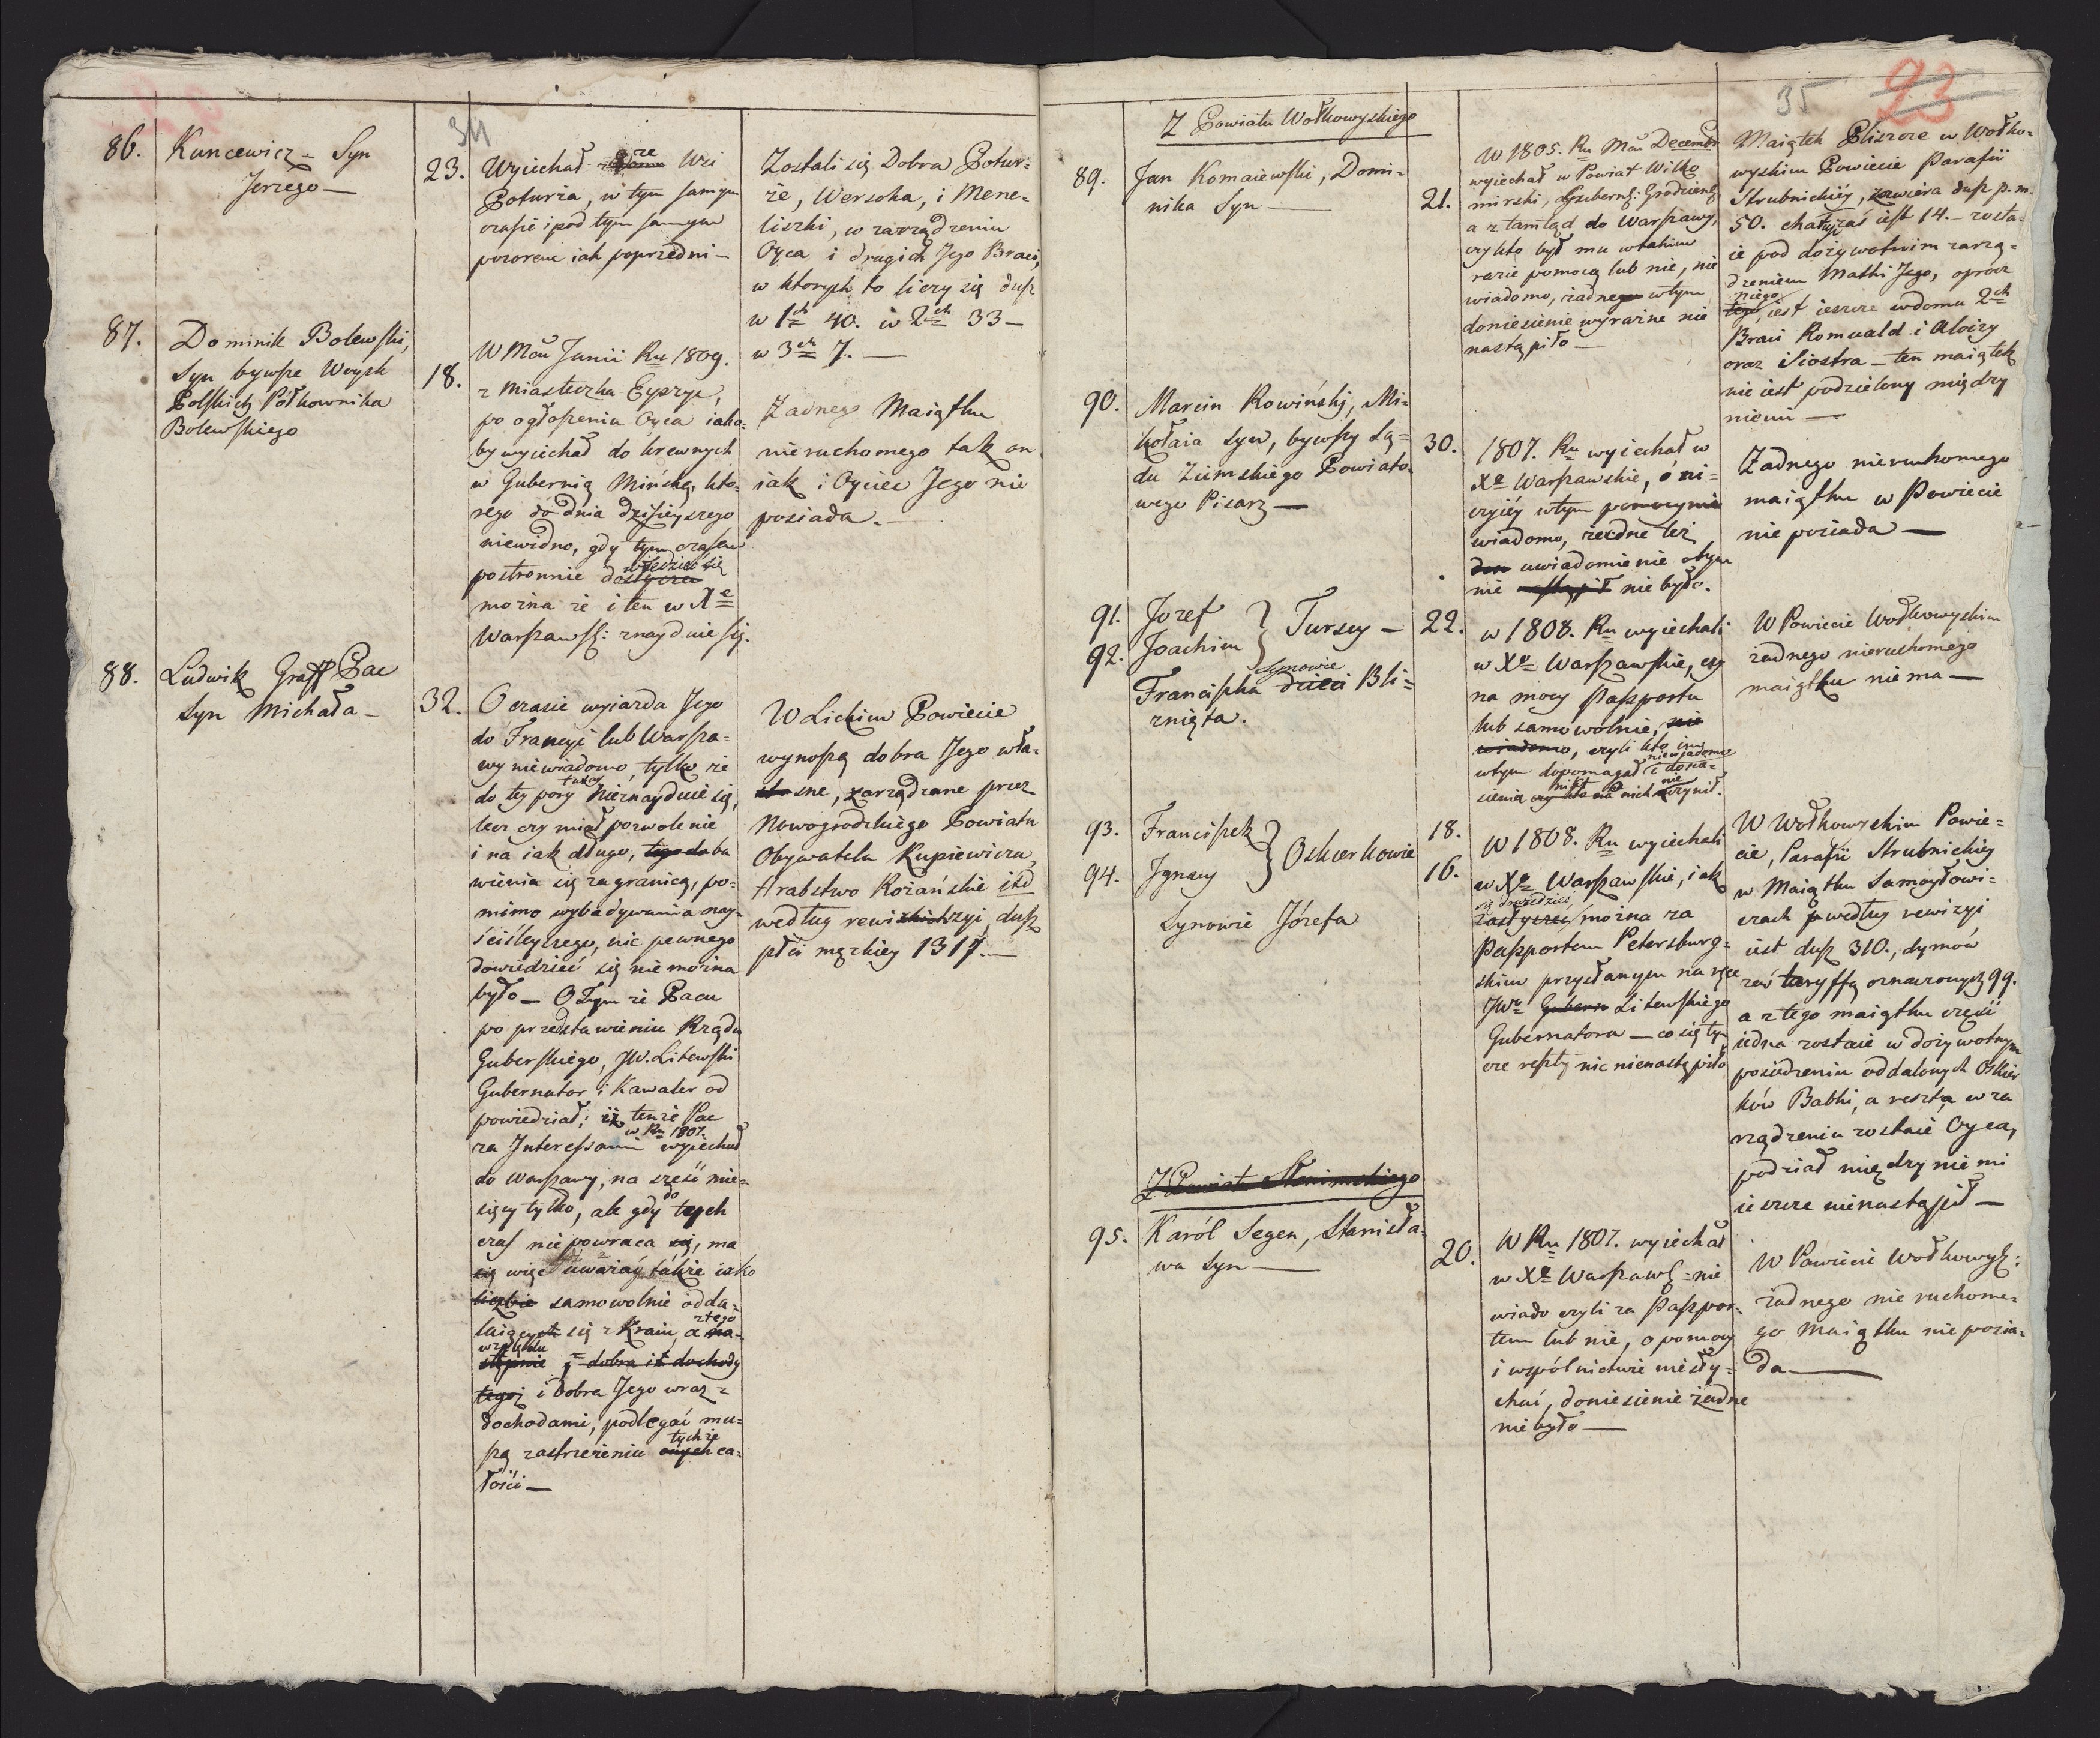 34
86.
Kuncewicz – Syn
Jerzego —
23.
Wyiechał ze Wsi
Poturza, w tym samym
czasie i pod tym samym
pozorem iak poprzedni —
Zostali się Dobra Potur=
że, Wersoka, i Mene=
liszki, w zarządzeniu
Oyca i drugich Jego Braci,
w ktorych to liczy się dusz
w 1ch 40. w 2ch 33 –
w 3ch 7. —
87.
Dominik Bolewski,
Syn bywsze Woysk
Polskich Połkownika
Bolewskiego
18.
W Mcu Junii Ru 1809.
z Miasteczka Eyszyc,
po ogłoszeniu Oyca iako=
by wyiechał do krewnych
w Gubernią Mińską, kto=
rego do dnia dzisieyszego
niewidno, gdy tym czasem
postronnie dowiedzieć się
można że i ten w Xe
Warszawsk: znayduie się.
Zadnego Maiątku
nieruchomego tak on
iak i Oyciec Jego nie
posiada. —
88.
Ludwik Graff Pac
Syn Michała –
32.
O czasie wyiazdu Jego
do Francyi lub Warsza=
wy niewiadomo, tylko że
do tey pory tutay nieznayduie się,
lecz czy miał pozwolenie
i na iak długo, tego do ba
wienia się za granicą, po=
mimo wybadywania nay=
ściśleyszego, nic pewnego
dowiedzieć się nie można
było — O Tym że Pacu
po przedstawieniu Rządu
Guberskiego, JW. Litewski
Gubernator i Kawaler od
powiedział: iż tenże Pac
za Interessami w Ru 1807. wyiechał
do Warszawy, na sześć mie=
sięcy tylko, ale gdy do tych
czas nie powraca się, ma
się więc uważać także iako
liczbie samowolnie odda=
laiących się z Kraiu, a z tego
względu
i dobra iż dochody
tegoż i Dobra Jego wraz z
dochodami, podlegać mu=
szą zastrzeżeniu tychże ca=
łości —
W Lickim Powiecie
wynoszą dobra Jego wła=
sne, zarządzane przez
Nowogrodzkiego Powiatu
Obywatela Kupiewicza,
Hrabstwo Rożańskie itd
według rewizyi, dusz
płci męzkiey 1317. —
35
23
Z Powiatu Wołkowyskiego
89.
Jan Komaiewski, Domi=
nika Syn —
21.
W 1805. Ru Mcu Decembr
wyiechał w Powiat Wilko
mirski, Gubernſ: Grodzienſ
a z tamtąd do Warszawy,
czy kto był mu w takim
razie pomocą lub nie, nie
wiadomo, żadnego w tym
doniesienie wyraźne nie
nastąpiło —
Maiątek Pliszcze w Wołko=
wyskim Powiecie Parafii
Strubnickiéy, zawiera dusz p. m.
50. chat zaś iest 14. — zosta=
ie pod dożywotnim zarzą=
dzeniem Matki Jego, oprócz
niego, iest ieszcze w domu 2ch
Braci Romuald i Aloizy
oraz Siostra — ten maiątek
nie iest podzielony między
niemi —
90.
Marcin Rowiński, Mi=
kołaia Syn, bywszy Są=
du Ziemskiego Powiato=
wego Pisarz —
30.
1807. Ru wyiechał w
Xe Warszawskie, ó ni=
czyiéy w tym pomocy nie
wiadomo, żadne też
uwiadomienie o tym
nie nie było.
Zadnego nieruchomego
maiątku w Powiecie
nie posiada —
91. Jozef
92. Joachim } Tursey —
Franciszka Synowie dzieci Bli=
znięta.
22.
w 1808. Ru wyiechali
w Xe Warszawskie, czy
na mocy Paszportu
lub samowolnie, nie
wiadomo, czyli kto im
w tym dopomagał niewiadomo i donie=
sienia nikt o nich nie czynił.
W Powiecie Wołkowyskim
żadnego nieruchomego
maiątku nie ma —
93. Franciszek
94. Jgnacy } Oskierkowie
Synowie Józefa
18.
16.
W 1808. Ru wyiechali
w Xe Warszawskie, iak
się dowiedzieć
można za
Paszportem Petersburg=
skim przysłanym na ręce
JWo Gubern Litewskiego
Gubernatora — co się ty
cze reszty nic nienastąpiło
W Wołkowyskim Powie=
cie, Parafii Strubnickiey
w Maiątku Samoyłowi=
czach według rewizyi
iest dusz 310., dymów
zaś taryffą oznaczonych 99.
a z tego maiątku część
iedna zostaie w dożywotnym
posiedzeniu oddalonych Oskier
ków Babki, a reszta w za
rządzeniu zostaie Oyca,
podział między niemi
ieszcze nienastąpił —
Z Powiatu Słonimskiego
95.
Karól Segen, Stanisła=
wa Syn —
20.
W Ru 1807. wyiechał
w Xe Warszawſ – nie
wiado czyli za Paszpor=
tem lub nie, o pomocy
i wspólnictwie niesły=
chać, doniesienie żadne
nie było —
W Powiecie Wołkowyſ:
żadnego nie ruchome=
go Maiątku nie posia=
da —